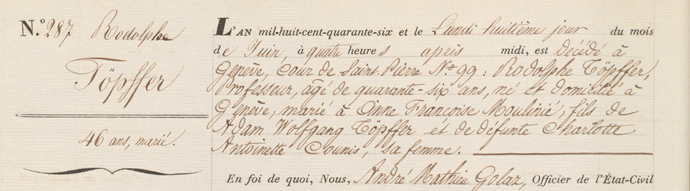 N.º 287 Rodolphe
Töpffer
46 ans, marié.
L'AN mil-huit-cent-quarante-six et le Lundi huitième jour du mois
de Juin, à quatre heures après midi, est décédé à
Genève, Cour de Saint-Pierre Nº 99: Rodolphe Töpffer,
Professeur, âgé de quarante-six ans, né et domicilié à
Genève, marié à Anne Françoise Moulinié, fils de
Adam Wolfgang Töpffer et de défunte Charlotte
Antoinette Counis, sa femme.
En foi de quoi, Nous, André Mathieu Golaz, Officier de l'État-Civil